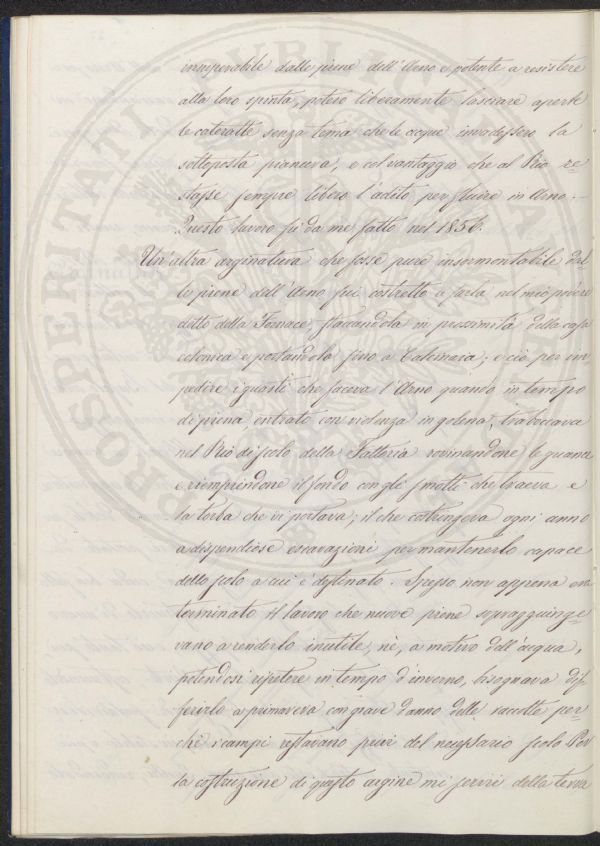 insuperabile dalle piene dell'Arno e potente a resistere
alla loro spinta, poteió liberamente lasciare aperte
le cateratte senza tema che le acque invadessero la
sottoposta pianura, e col vantaggio che al Rio re=
stasse sempre libero l'adito per fluire in Arno. —
Questo lavoro fu da me fatto nel 1856.
Un'altra arginatura che fosse pure insormontabile dal=
le piene dell'Arno fui costretto a farla nel mio podere
detto della Fornace, staccandola in prossimità della casa
colonica e portandola fino a Calcinaia; e ciò per im
pedire i guasti che faceva l'Arno quando in tempo
di piena, entrato con violenza in golena, traboccava
nel Rio di scolo della Fattoria rovinandone le guance
e riempiendone il fondo con gli smotti che traeva e
la torba che vi portava; il che costringeva ogni anno
a dispendiose escavazioni per mantenerlo capace
dello scolo a cui è destinato. Spesso non appena era
terminato il lavoro che nuove piene sopraggiunge=
vano a renderlo inutile, nè, a motivo dell'acqua,
potendosi ripetere in tempo d'inverno, bisognava dif=
ferirlo a primavera con grave danno delle raccolte per=
chè i campi restavano privi del necessario scolo Per
la costruzione di questo argine mi servii della terra
PROSPERITATI PUBLICAE